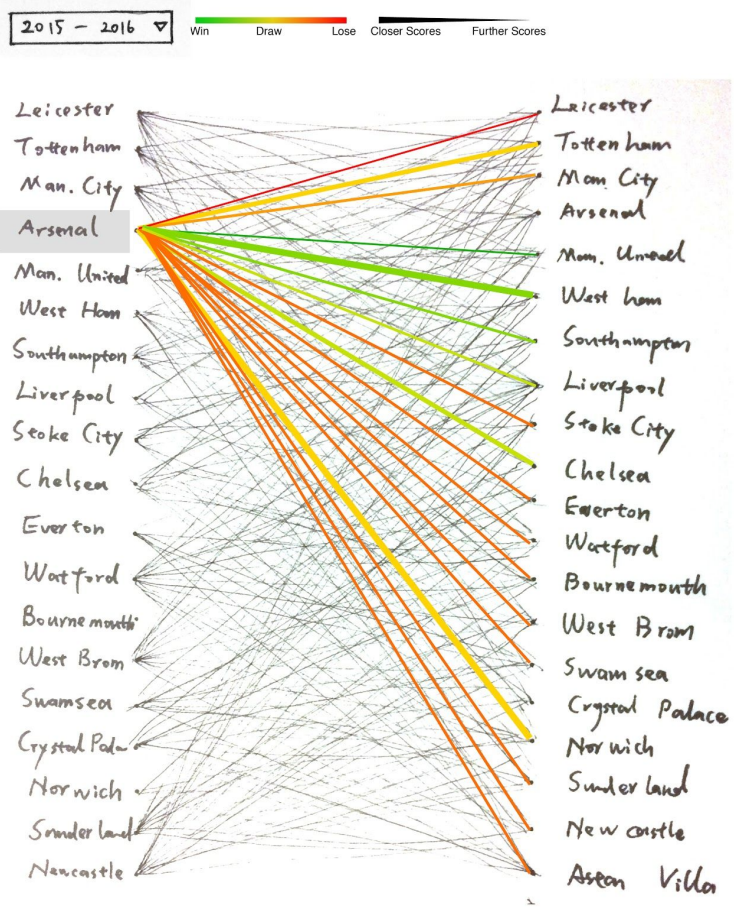 2015 - 2016 ▽
Win Draw Lose Closer Scores Further Scores
Leicester
Tottenham
Man. City
Arsenal
Man. United
West Ham
Southampton
Liverpool
Stoke City
Chelsea
Everton
Watford
Bournemouth
West Brom
Swamsea
Crystal Pala
Norwich
Sunderland
Newcastle
Leicester
Tottenham
Man City
Arsenal
Man. United
West ham
Southampton
Liverpool
Stoke City
Chelsea
Everton
Watford
Bournemouth
West Brom
Swamsea
Crystal Palace
Norwich
Sunderland
Newcastle
Villa